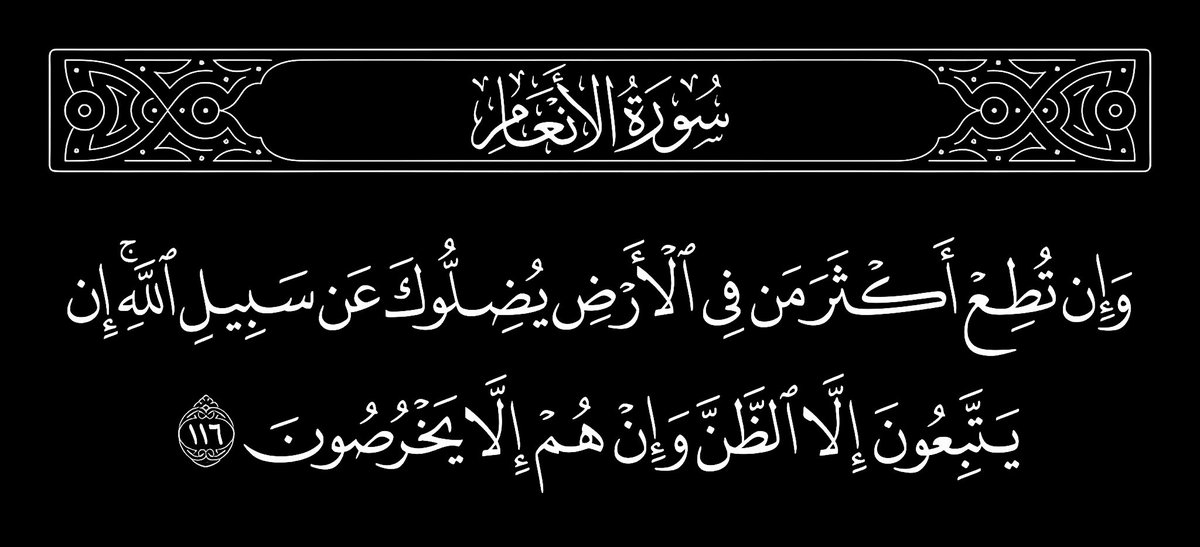 سُورَةُ الأَنْعَامِ
وَإِن تُطِعْ أَكْثَرَ مَن فِى ٱلْأَرْضِ يُضِلُّوكَ عَن سَبِيلِ ٱللَّهِ ۚ إِن
يَتَّبِعُونَ إِلَّا ٱلظَّنَّ وَإِنْ هُمْ إِلَّا يَخْرُصُونَ ١١٦